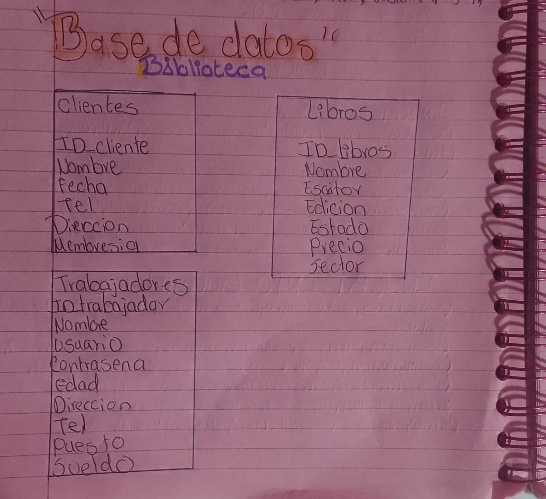 "Base de datos"
Biblioteca
Clientes
ID_cliente
Nombre
Fecha
Tel
Dierccion
Membresia
Libros
ID_libros
Nombre
Escritor
Edicion
Estado
Precio
Sector
Trabajadores
ID trabajador
Nombre
Usuario
Contrasena
edad
Direccion
Tel
Puesto
Sueldo